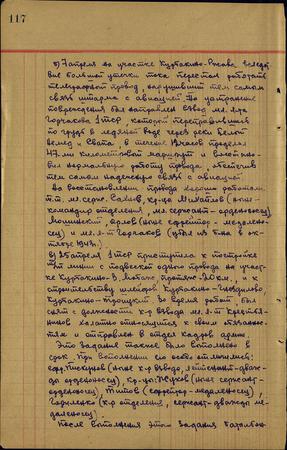 117
5) 7 апреля на участке Куртакино-Ржава вследст-
вие большой утечки тока перестал работать
телеграфный провод, нарушивший тем самым
связь штарма с авиацией. На устранение
повреждения был направлен взвод мл. л-та
Горчакова 1 ТСР, который переправившись
по грудь в ледяной воде через реки Белой
Немед и Свапа, в течение часов проделал
47-ми километровый маршрут и восстано-
вил нормальную работу провода, обеспечив
тем самым надежную связь с авиацией.
На восстановлении провода хорошо работали:
т.т. мл. серж. Сасов, кр-ц Михайлов (ныне
командир отделения, мл. сержант-орденоносец)
Мошинский, (ныне ефрейтор-медале-
носец) и мл. л-т Горчаков (убит из боя в ок-
тябре 1943г.)
6) 25 апреля 1 ТСР приступила к постройке
линии с подвеской одного провода на участ-
ке Куртакино- Любаж протяж. км, и к
строительству шлейфов Куртакино-Гнездилово
Куртакино-Троицкий. Во время работ, был
снят с должности к-р взвода мл. л-т
халатно относящийся к своим обязаннос-
тям и отправлен в отдел кадров армии.
Это задание также было выполнено в
срок. При выполнении его особо отличились:
ефр. Пискунов (ныне к-р взвода, лейтенант-дваж-
ды орденоносец), кр-цы: Жуков (ныне сержант-
орденоносец), Титов (ефрейтор-медаленосец),
(к-р отделения, сержант-дважды ме-
даленосец).
После выполнения этого задания батальон